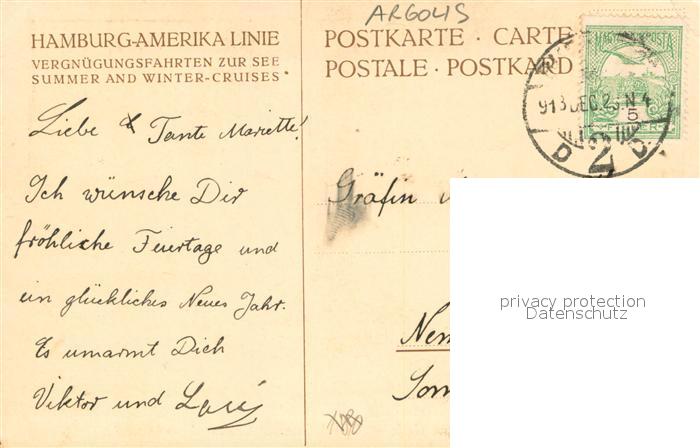 ARGOLIS
HAMBURG-AMERIKA LINIE
VERGNÜGUNGSFAHRTEN ZUR SEE
SUMMER AND WINTER-CRUISES
POSTKARTE · CARTE
POSTALE · POSTKARD
Liebe Tante Mariette!
Ich wünsche Dir
fröhliche Feiertage und
ein glückliches Neues Jahr.
Es umarmt Dich
Viktor und
MAGYAR POSTA
913 DEC. N 4
5
D 2 D
Gräfin
privacy protection
Datenschutz